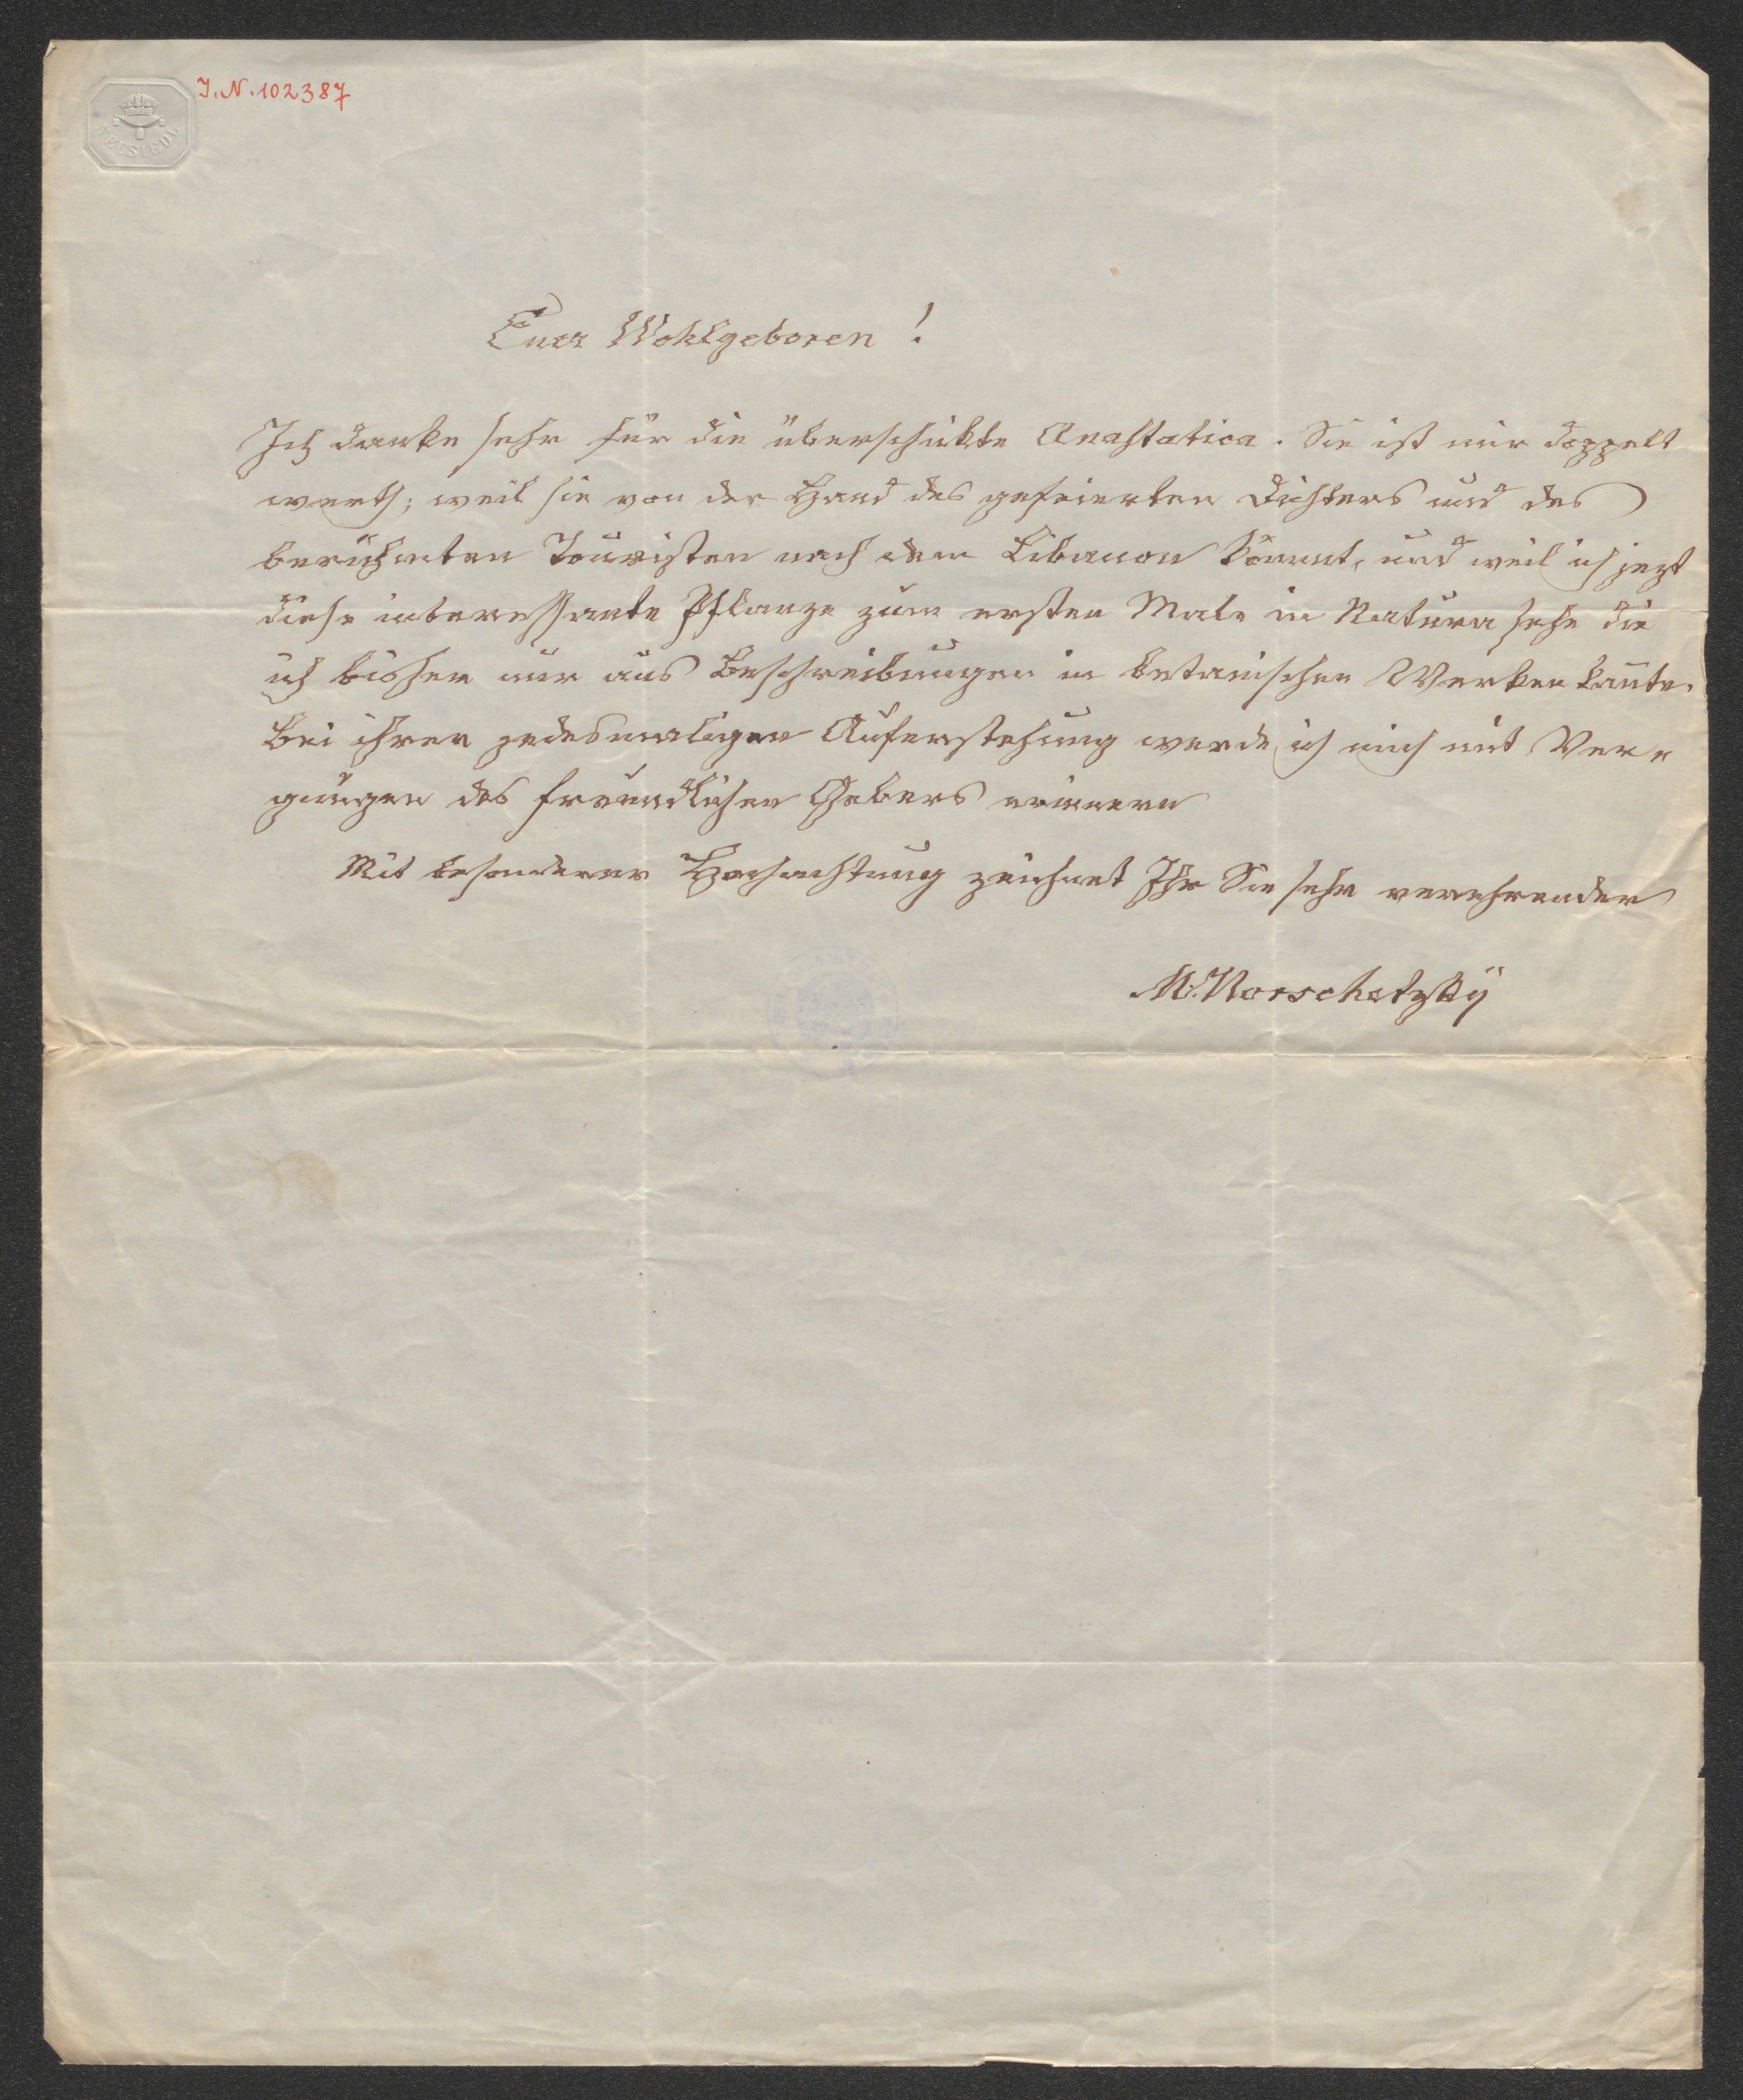 J. N. 102387
NEUSIEDL
Euer Wohlgeboren!
Ich danke sehr für die überschickte Anastatica. Sie ist mir doppelt
werth; weil sie von der Hand des gefeierten Dichters und des
berühmten Touristen nach dem Libanon kommt, und weil ich jezt
diese interessante Pflanze zum ersten Male in Natura sehe die
ich bisher nur aus Beschreibungen in botanischen Werken kannte.
Bei ihrer jedesmaligen Auferstehung werde ich mich mit Ver-
gnügen des freundlichen Gebers erinnern
Mit besonderer Hochachtung zeichnet Ihr Sie sehr verehrender